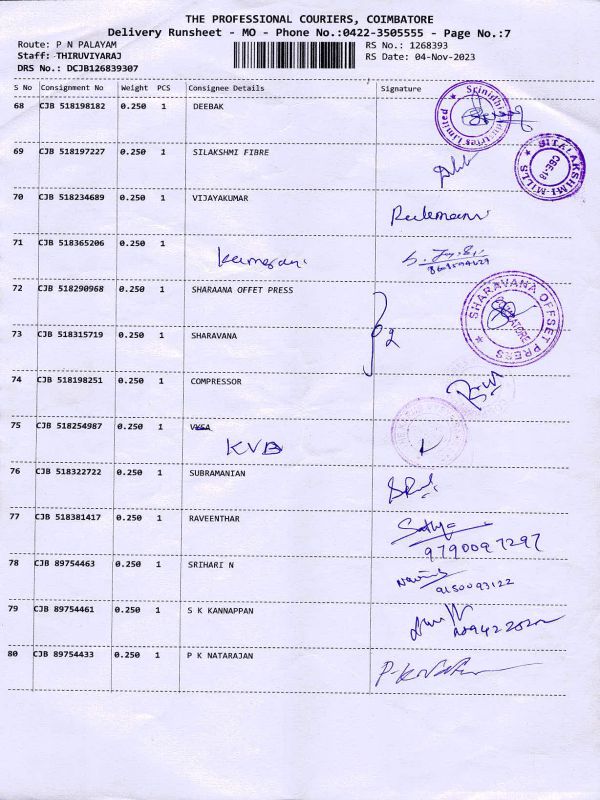 THE PROFESSIONAL COURIERS, COIMBATORE
Delivery Runsheet - MO - Phone No.:0422-3505555 - Page No.:7
Route: P N PALAYAM RS No.: 1268393
Staff: THIRUVIYARAJ RS Date: 04-Nov-2023
DRS No.: DCJB126839307
S No Consignment No Weight PCS Consignee Details Signature
68 CJB 518198182 0.250 1 DEEBAK
69 CJB 518197227 0.250 1 SILAKSHMI FIBRE
SITALAKSHMI MILLS CBE-18
70 CJB 518234689 0.250 1 VIJAYAKUMAR
71 CJB 518365206 0.250 1
72 CJB 518290968 0.250 1 SHARAANA OFFET PRESS
SHARAVANA OFFSET PRESS
73 CJB 518315719 0.250 1 SHARAVANA
74 CJB 518198251 0.250 1 COMPRESSOR
75 CJB 518254987 0.250 1
KVB
76 CJB 518322722 0.250 1 SUBRAMANIAN
77 CJB 518381417 0.250 1 RAVEENTHAR Sathya
9790097297
78 CJB 89754463 0.250 1 SRIHARI N
9150093122
79 CJB 89754461 0.250 1 S K KANNAPPAN
80 CJB 89754433 0.250 1 P K NATARAJAN